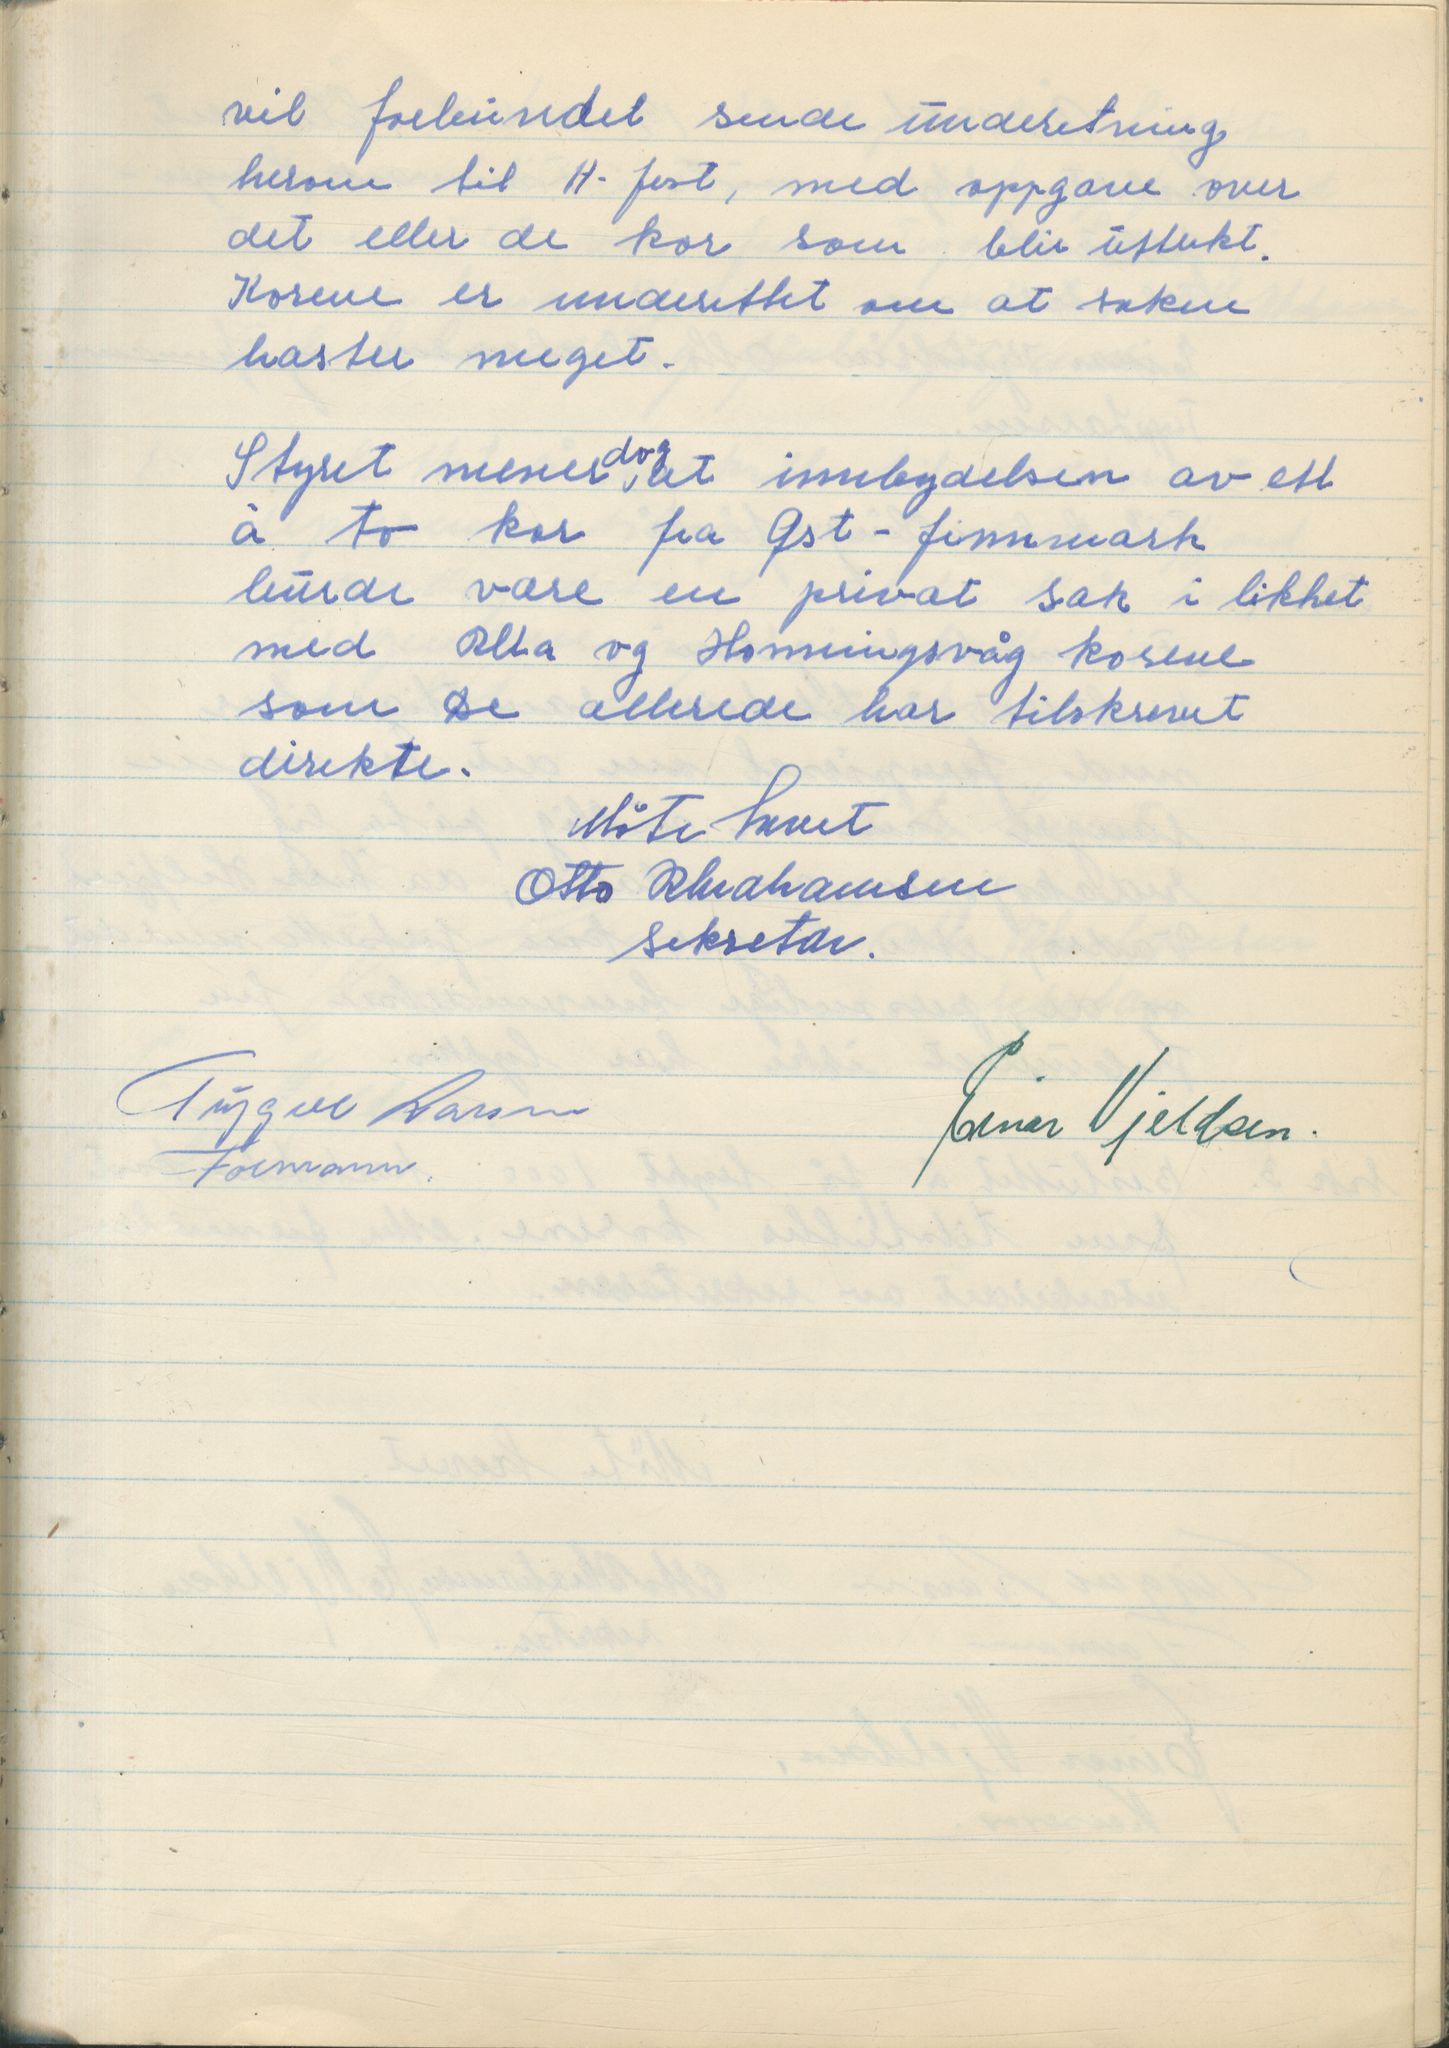 vil forbundet sende underetning
herom til H-fest, med oppgave over
det eller de kor som blir uttukt.
Korene er underettet om at saken
haster meget.
Styret mener dog, at innbydelsen av ett
à to kor fra Øst-finnmark
burde være en privat sak i likhet
med Alta og Honningsvåg korene
som De allerede har tilskrevet
direkte.
Møte hevet
Otto Abrahamsen
sekretær.
Tryggve Larsen
Formann.
Einar Mjeldsen.